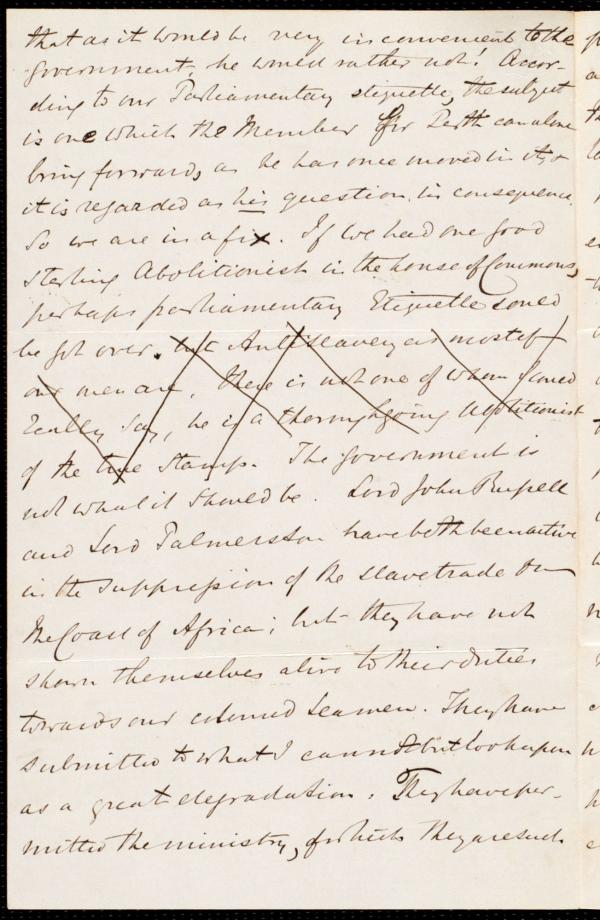 that as it would be very inconvenient to the
government, he would rather not! Accor-
ding to our Parliamentary etiquette, the subject
is one which the Member for Perth can alone
bring forward, as he has once moved in it, &
it is regarded as his question in consequence.
So we are in a fix. If we had one good
sterling Abolitionist in the house of Commons,
perhaps parliamentary Etiquette could
be got over. but Antislavery as most of
our men are, there is not one of whom I could
really say, he is a thoroughgoing Abolitionist
of the true stamp. The government is
not what it should be. Lord John Russell
and Lord Palmerston have both been active
in the suppression of the slave trade on
the Coast of Africa; but they have not
shown themselves alive to their duties
towards our colored seamen. They have
submitted to what I cannot but look upon
as a great degradation. They have per-
mitted the ministry, of which they are such